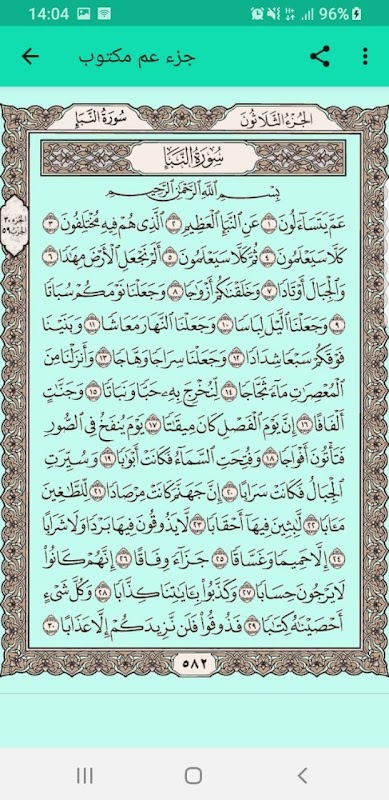 14:04 96%
جزء عم مكتوب
الجُزْءُ الثَّلَاثُونَ سُورَةُ النَّبَإِ
سُورَةُ النَّبَإِ
بِسْمِ اللَّهِ الرَّحْمَٰنِ الرَّحِيمِ
عَمَّ يَتَسَآءَلُونَ ١ عَنِ ٱلنَّبَإِ ٱلْعَظِيمِ ٢ ٱلَّذِى هُمْ فِيهِ مُخْتَلِفُونَ ٣
الجزء ٣٠
الحزب ٥٩
كَلَّا سَيَعْلَمُونَ ٤ ثُمَّ كَلَّا سَيَعْلَمُونَ ٥ أَلَمْ نَجْعَلِ ٱلْأَرْضَ مِهَٰدًا ٦
وَٱلْجِبَالَ أَوْتَادًا ٧ وَخَلَقْنَٰكُمْ أَزْوَٰجًا ٨ وَجَعَلْنَا نَوْمَكُمْ سُبَاتًا
٩ وَجَعَلْنَا ٱلَّيْلَ لِبَاسًا ١٠ وَجَعَلْنَا ٱلنَّهَارَ مَعَاشًا ١١ وَبَنَيْنَا
فَوْقَكُمْ سَبْعًا شِدَادًا ١٢ وَجَعَلْنَا سِرَاجًا وَهَّاجًا ١٣ وَأَنزَلْنَا مِنَ
ٱلْمُعْصِرَٰتِ مَآءً ثَجَّاجًا ١٤ لِّنُخْرِجَ بِهِۦ حَبًّا وَنَبَاتًا ١٥ وَجَنَّٰتٍ
أَلْفَافًا ١٦ إِنَّ يَوْمَ ٱلْفَصْلِ كَانَ مِيقَٰتًا ١٧ يَوْمَ يُنفَخُ فِى ٱلصُّورِ
فَتَأْتُونَ أَفْوَاجًا ١٨ وَفُتِحَتِ ٱلسَّمَآءُ فَكَانَتْ أَبْوَٰبًا ١٩ وَسُيِّرَتِ
ٱلْجِبَالُ فَكَانَتْ سَرَابًا ٢٠ إِنَّ جَهَنَّمَ كَانَتْ مِرْصَادًا ٢١ لِّلطَّٰغِينَ
مَـَٔابًا ٢٢ لَّٰبِثِينَ فِيهَآ أَحْقَابًا ٢٣ لَّا يَذُوقُونَ فِيهَا بَرْدًا وَلَا شَرَابًا
٢٤ إِلَّا حَمِيمًا وَغَسَّاقًا ٢٥ جَزَآءً وِفَاقًا ٢٦ إِنَّهُمْ كَانُوا۟
لَا يَرْجُونَ حِسَابًا ٢٧ وَكَذَّبُوا۟ بِـَٔايَٰتِنَا كِذَّابًا ٢٨ وَكُلَّ شَىْءٍ
أَحْصَيْنَٰهُ كِتَٰبًا ٢٩ فَذُوقُوا۟ فَلَن نَّزِيدَكُمْ إِلَّا عَذَابًا ٣٠
٥٨٢